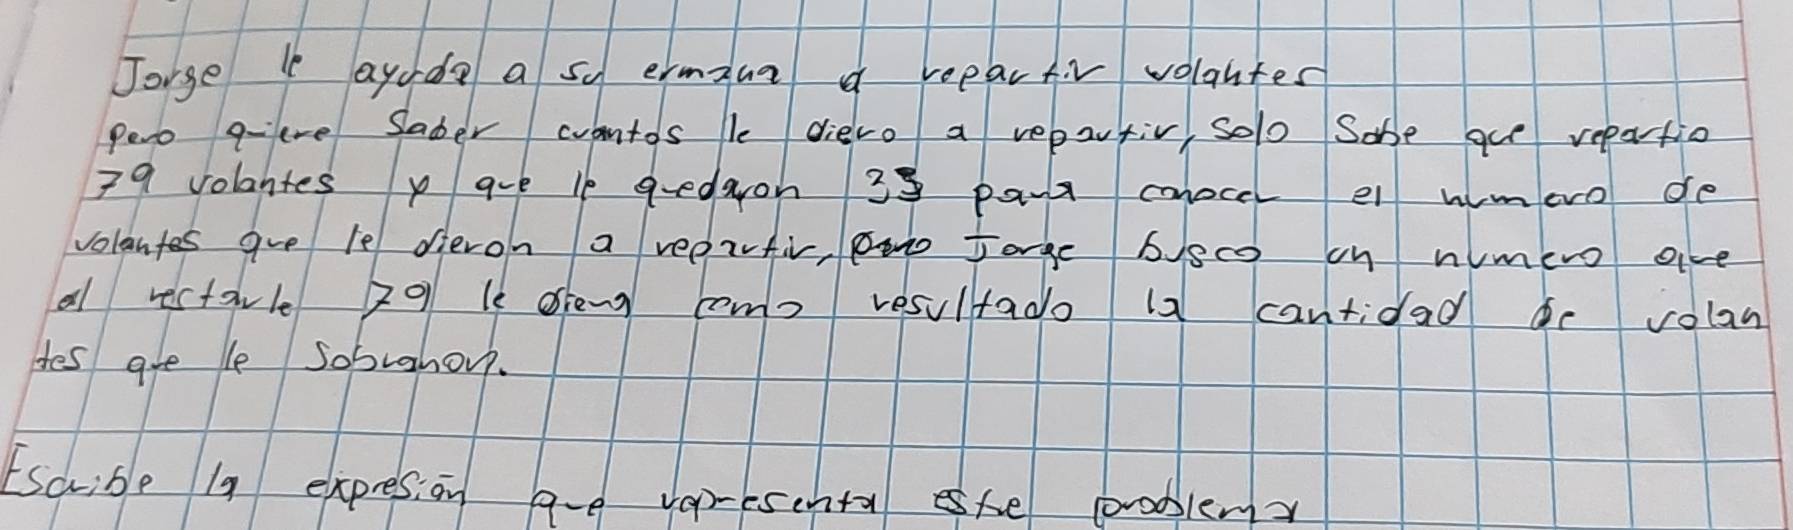 Jorge le ayuda a su ermana a repartir volantes
pero quiere saber cuantos le diero a repartir, solo sabe que repartio
79 volantes y que le quedaron 33 para conocer el numero de
volantes que le dieron a repartir, Jorge busco un numero que
al restarle 79 le diera como resultado la cantidad de volan
tes que le sobraron.
Escribe la expresión que representa este problema